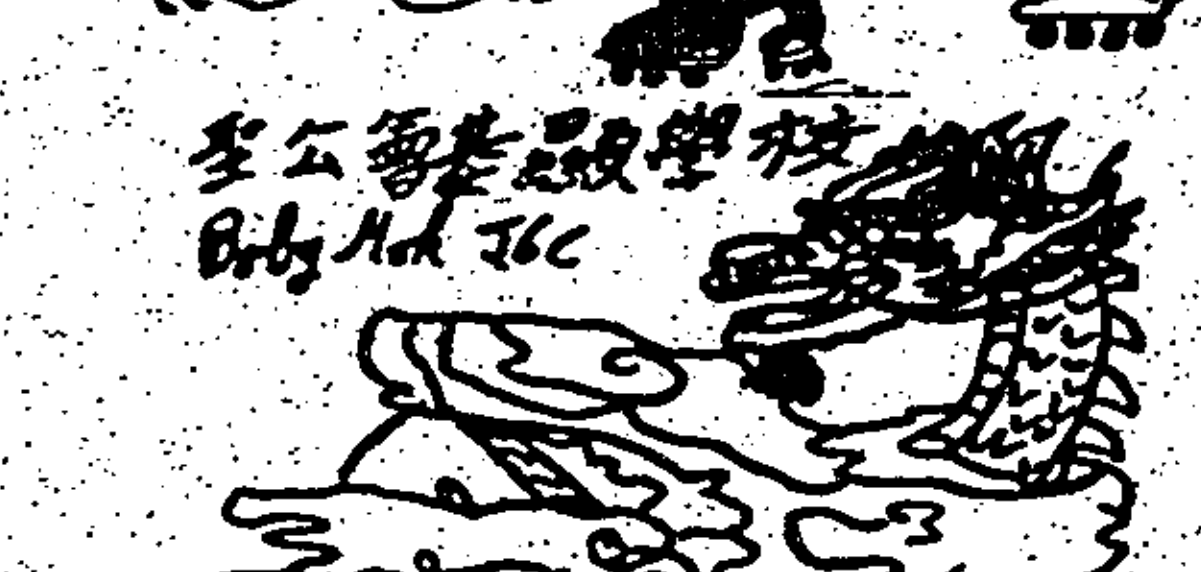 聖公會基顯學校
Boby Mok J6C